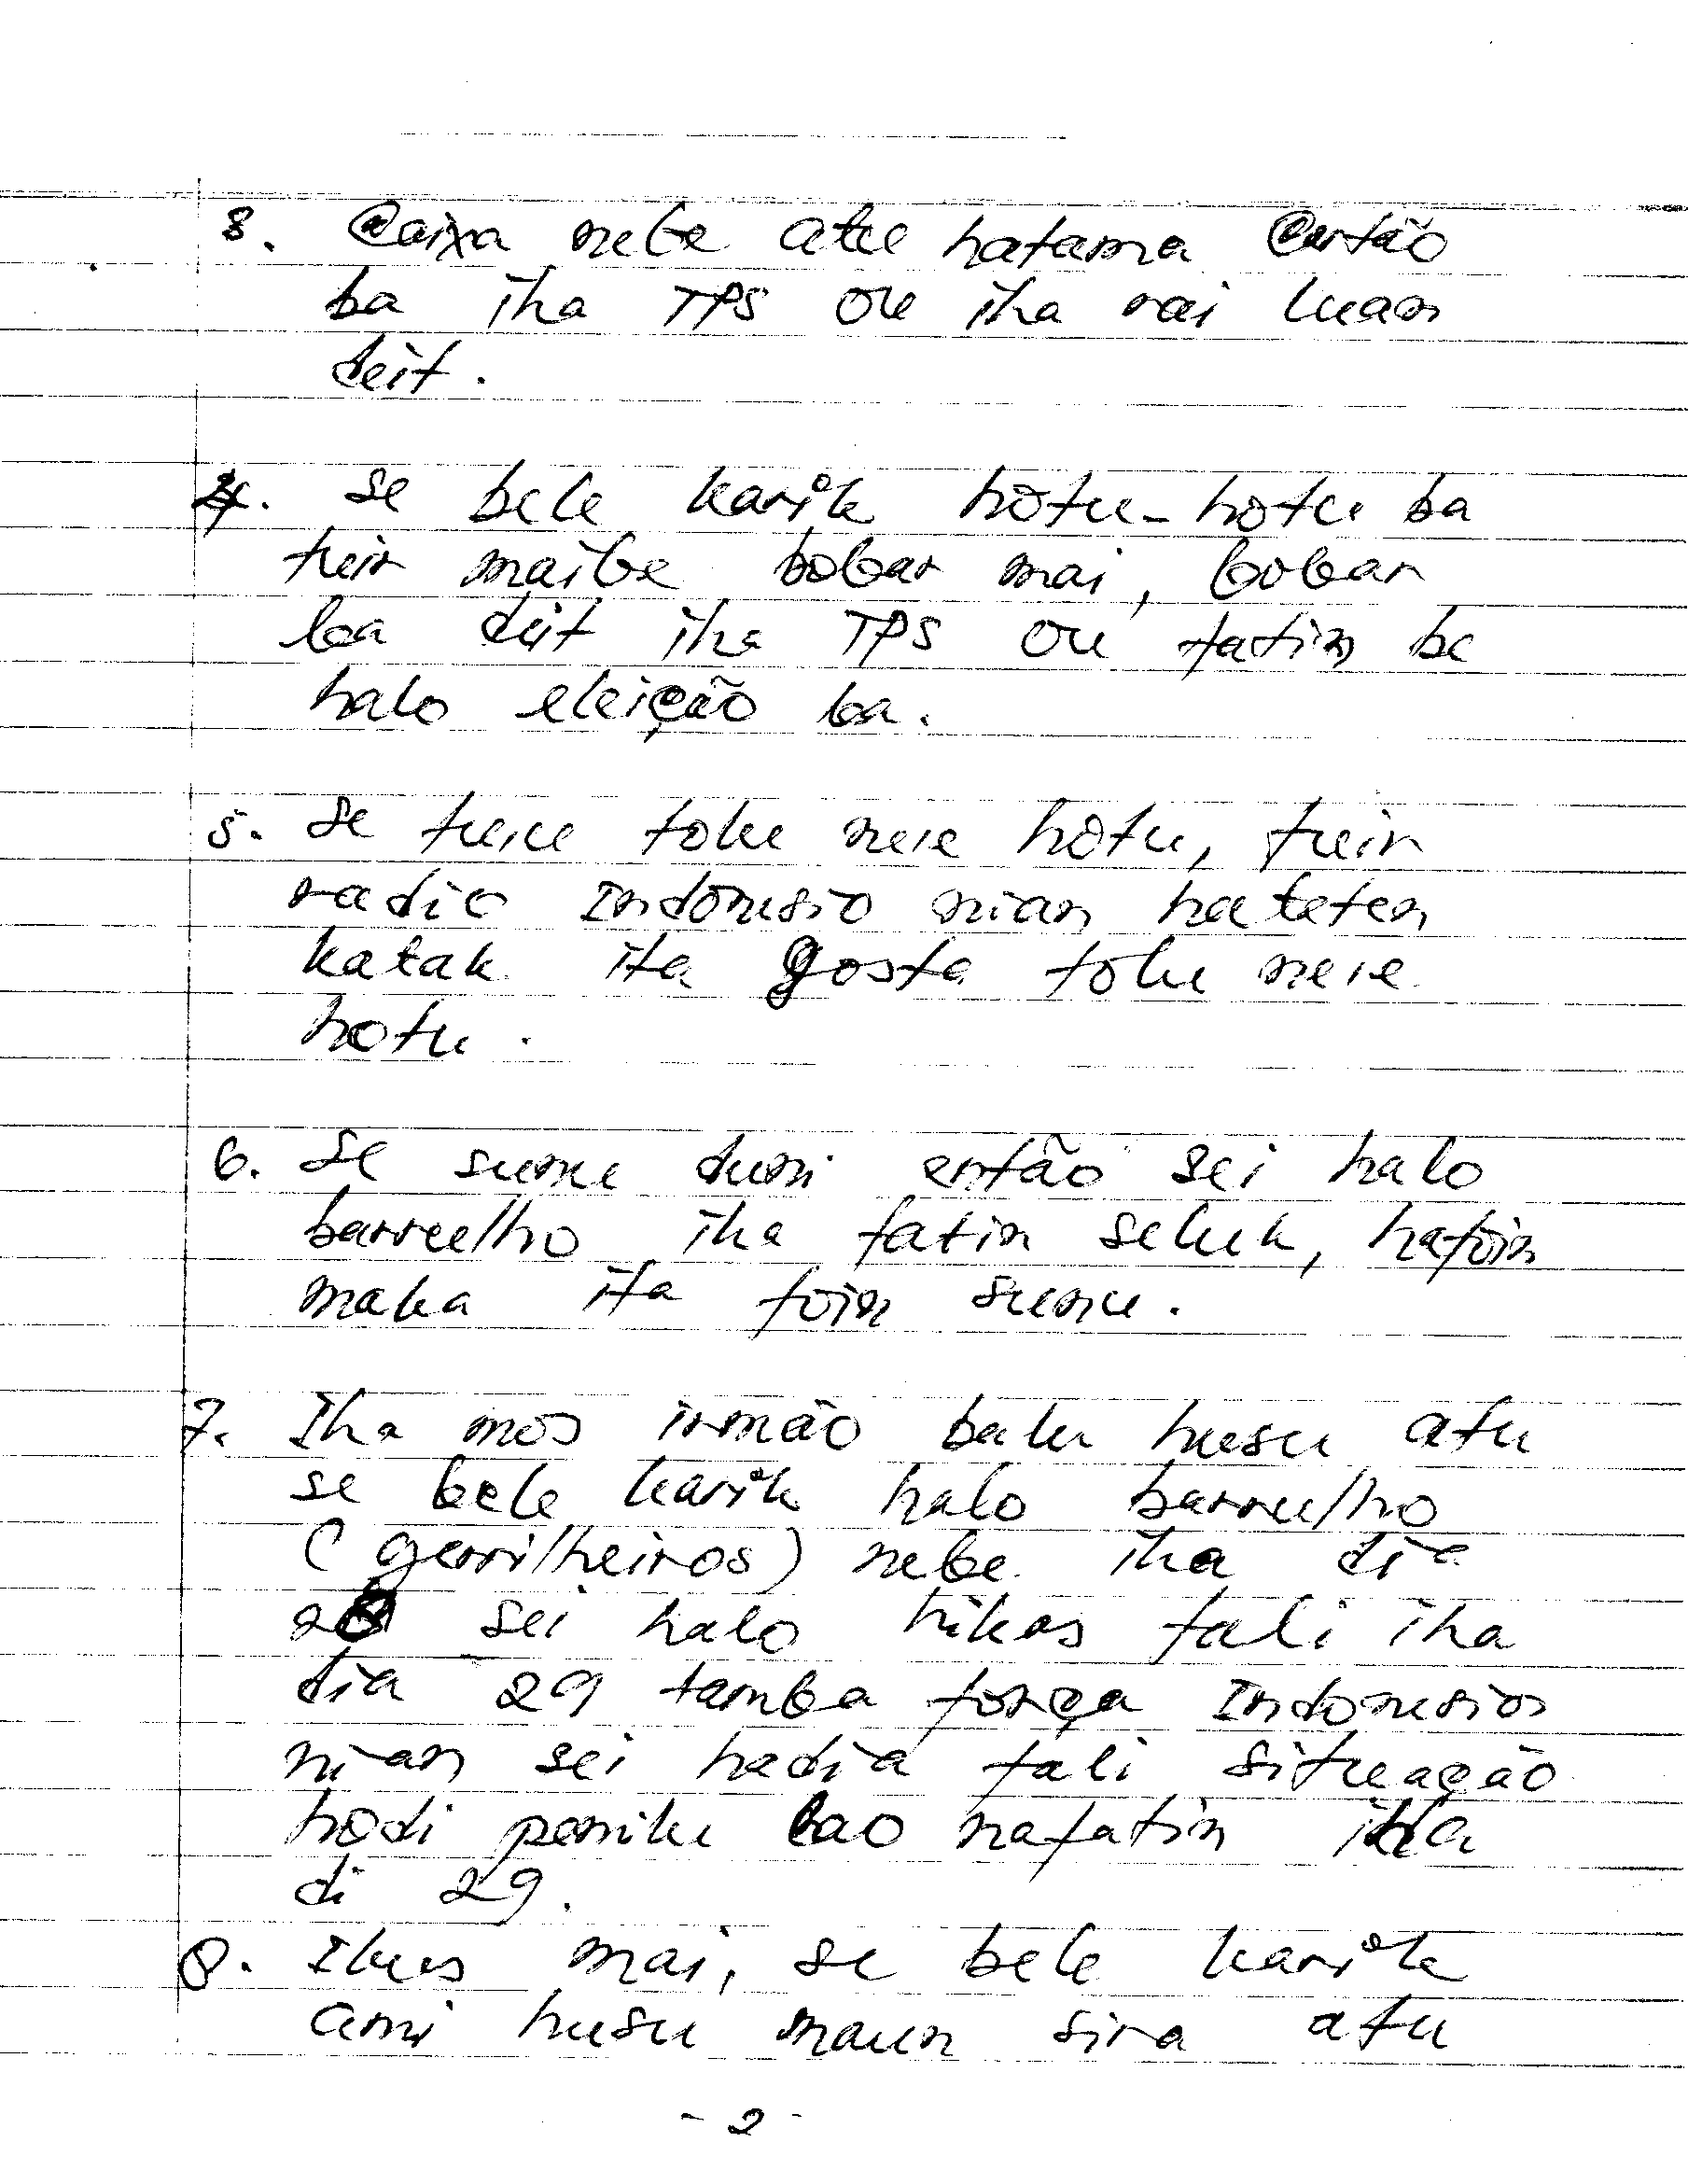 3. Caixa nebe atu hatama Cartão
ba iha TPS ou iha rai luan
deit.
4. Se bele karik hotu-hotu ba
tuir maibe bobar mai, bobar
ba deit iha TPS ou fatin be
halo eleição ba.
5. Se tuir toku neie hotu, tuir
radio Indonesio nian hateten
katak ita gosta toku neie
hotu.
6. Se sunu duni então sei halo
barrulho iha fatin seluk, hafoin
maka ita foin sunu.
7. Iha mos irmão balu husu atu
se bele karik halo barrulho
(gerrilheiros) nebe iha dia
28 sei halo hikas fali iha
dia 29 tamba força Indonesios
nian sei hadia fali situação
hodi pemilu lao nafatin iha
di 29.
8. Ikus mai, se bele karik
ami husu maun sira atu
- 2 -